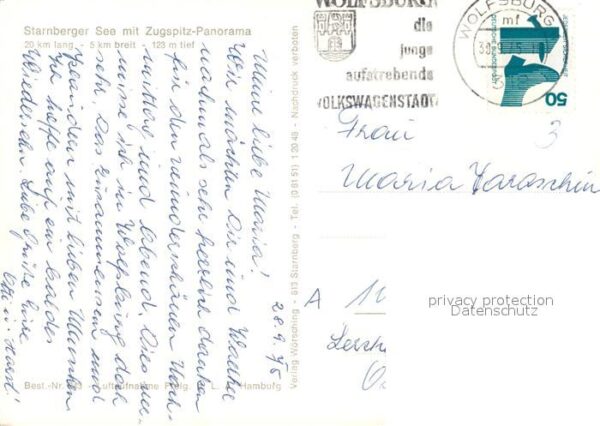 Starnberger See mit Zugspitz-Panorama
20 km lang - 5 km breit - 123 m tief
28.9.75
Meine liebe Maria!
Wir möchten Dir und Walther
nochmals sehr herzlich danken
für den wunderschönen Nach-
mittag und Abend. Dies ver-
misse ich in Wolfsburg doch
sehr, das Zusammensein und
Plaudern mit lieben Menschen
Ich hoffe auf ein baldes
Wiedersehn. Liebe Grüße Eure
Horst!
Best.-Nr. Luftaufnahme L. Hamburg
Verlag Wörsching - 813 Starnberg - Tel. (0 81 51) 1 20 48 - Nachdruck verboten
WOLFSBURG
die
junge
aufstrebende
VOLKSWAGENSTADT
WOLFSBURG
mf
50
Frau
3
Maria
A
privacy protection
Datenschutz